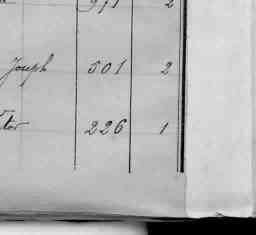 Joseph 501 2
tor 226 1